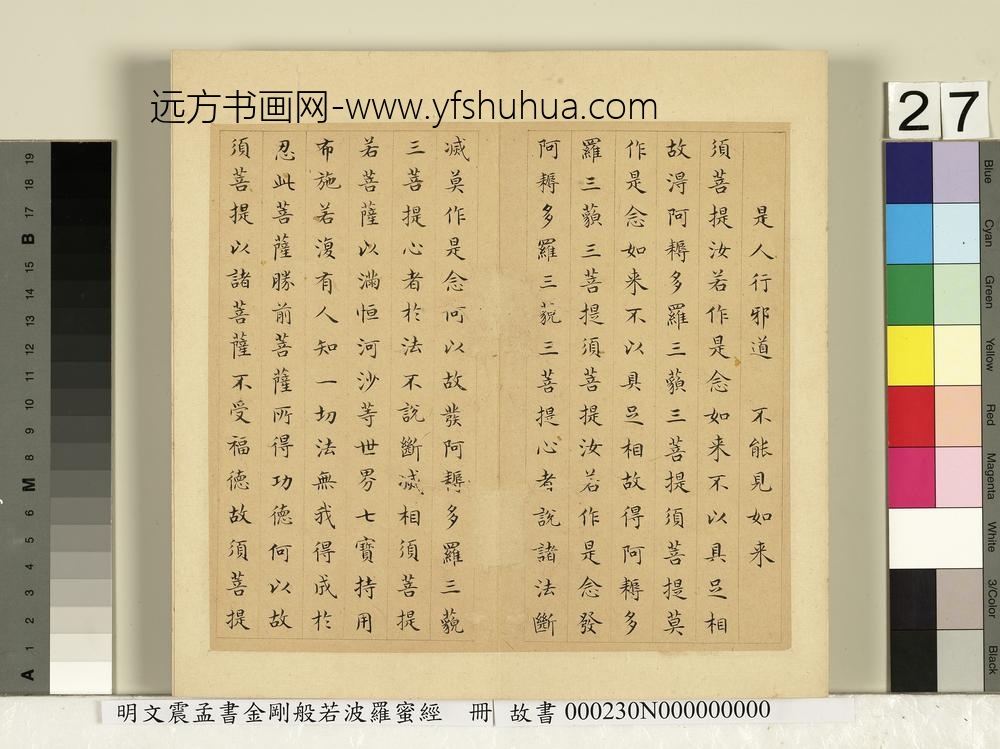 远方书画网-www.yfshuhua.com
是人行邪道 不能見如来
須菩提汝若作是念如来不以具足相
故淂阿耨多羅三藐三菩提須菩提莫
作是念如来不以具足相故得阿耨多
羅三藐三菩提須菩提汝若作是念發
阿耨多羅三藐三菩提心者說諸法斷
滅莫作是念何以故發阿耨多羅三藐
三菩提心者於法不說斷滅相須菩提
若菩薩以滿恒河沙等世界七寶持用
布施若復有人知一切法無我得成於
忍此菩薩勝前菩薩所得功德何以故
須菩提以諸菩薩不受福德故須菩提
27
Blue
Cyan
Green
Yellow
Red
Magenta
White
3/Color
Black
19
18
17
B
15
14
13
12
11
10
9
8
M
6
5
4
3
2
1
A
明文震孟書金剛般若波羅蜜經 冊 故書 000230N000000000